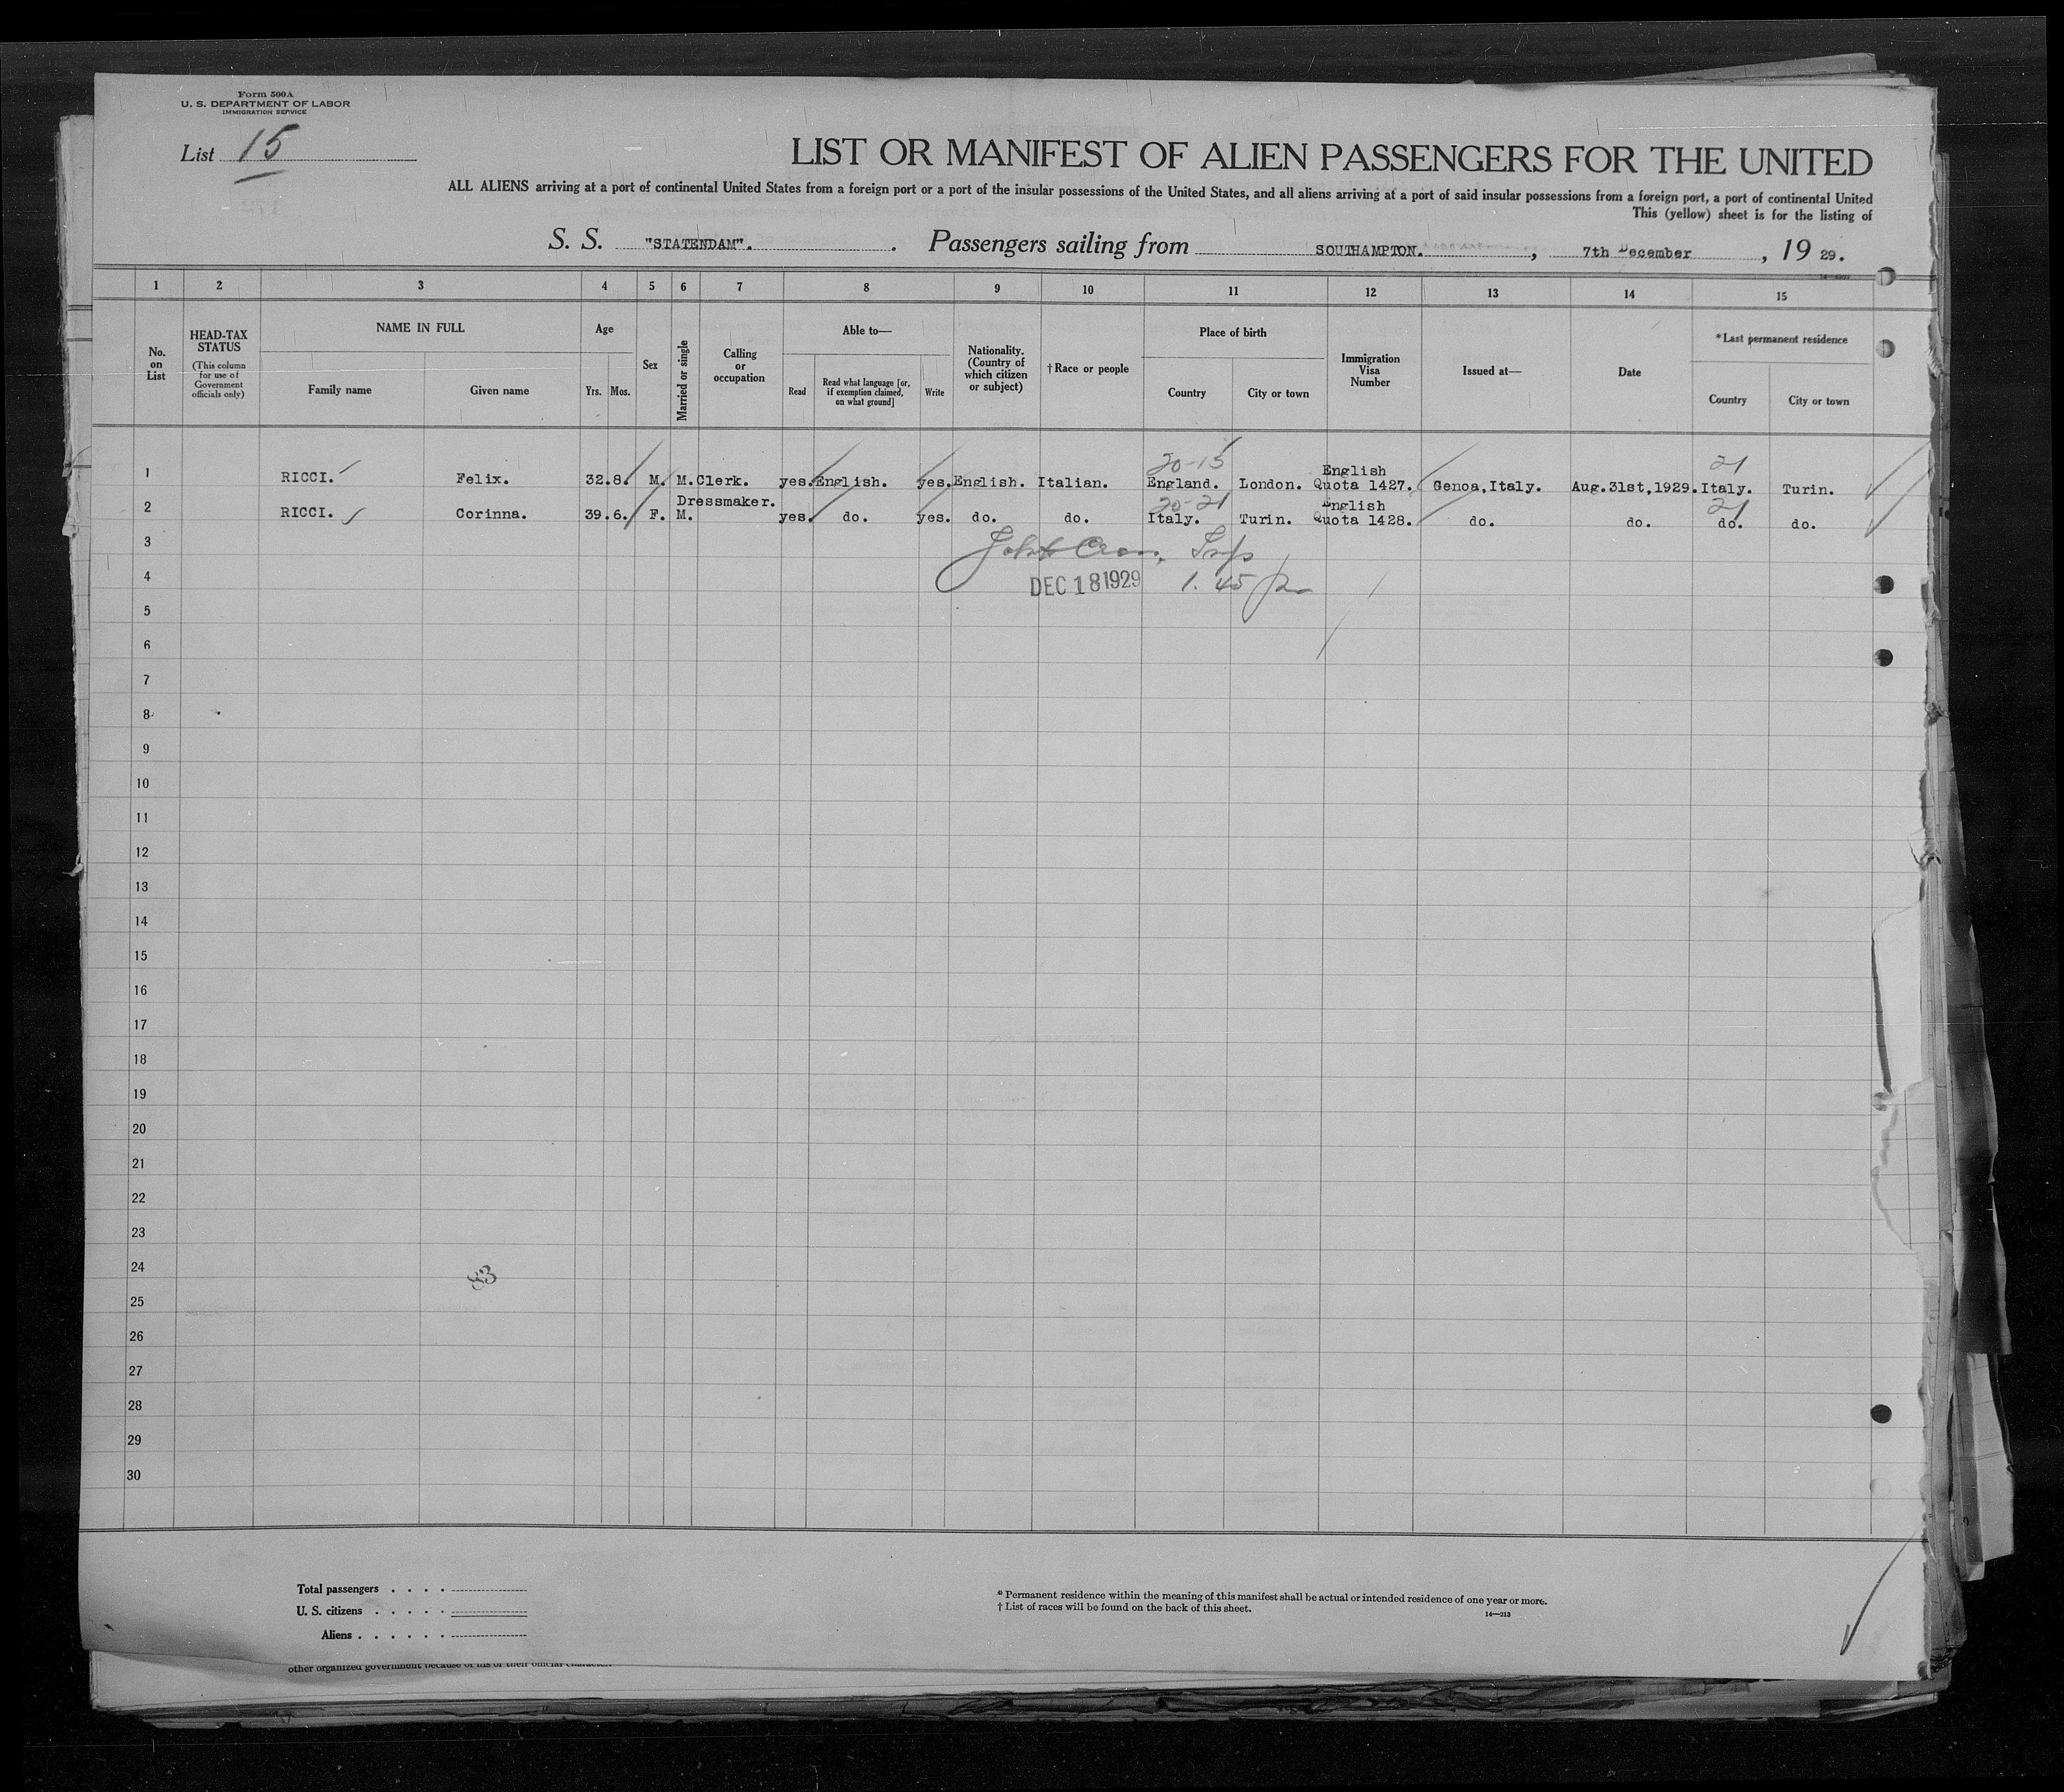 Form 500A
U. S. DEPARTMENT OF LABOR
IMMIGRATION SERVICE
List 15
LIST OR MANIFEST OF ALIEN PASSENGERS FOR THE UNITED
ALL ALIENS arriving at a port of continental United States from a foreign port or a port of the insular possessions of the United States, and all aliens arriving at a port of said insular possessions from a foreign port, a port of continental United
This (yellow) sheet is for the listing of
S. S. "STATENDAM". Passengers sailing from SOUTHAMPTON. , 7th December , 19 29.
1 2 3 4 5 6 7 8 9 10 11 12 13 14 15
No. on List
HEAD-TAX STATUS
(This column for use of Government officials only)
NAME IN FULL
Family name Given name
Age
Yrs. Mos.
Sex
Married or single
Calling or occupation
Able to—
Read
Read what language [or, if exemption claimed, on what ground]
Write
Nationality. (Country of which citizen or subject)
† Race or people
Place of birth
Country City or town
Immigration Visa Number
Issued at—
Date
*Last permanent residence
Country City or town
20-15 21
1 RICCI. Felix. 32.8. M. M. Clerk. yes. English. yes. English. Italian. England. London. English Quota 1427. Genoa, Italy. Aug.31st,1929. Italy. Turin.
20-21 21
2 RICCI. Corinna. 39.6. F. M. Dressmaker. yes. do. yes. do. do. Italy. Turin. English Quota 1428. do. do. do. do.
3
4 DEC 18 1929 1.45
5
6
7
8
9
10
11
12
13
14
15
16
17
18
19
20
21
22
23
24
25
26
27
28
29
30
Total passengers . . . .
U. S. citizens . . . . .
Aliens . . . . . .
* Permanent residence within the meaning of this manifest shall be actual or intended residence of one year or more.
† List of races will be found on the back of this sheet.
14—213
other organized government because of his or their official character.